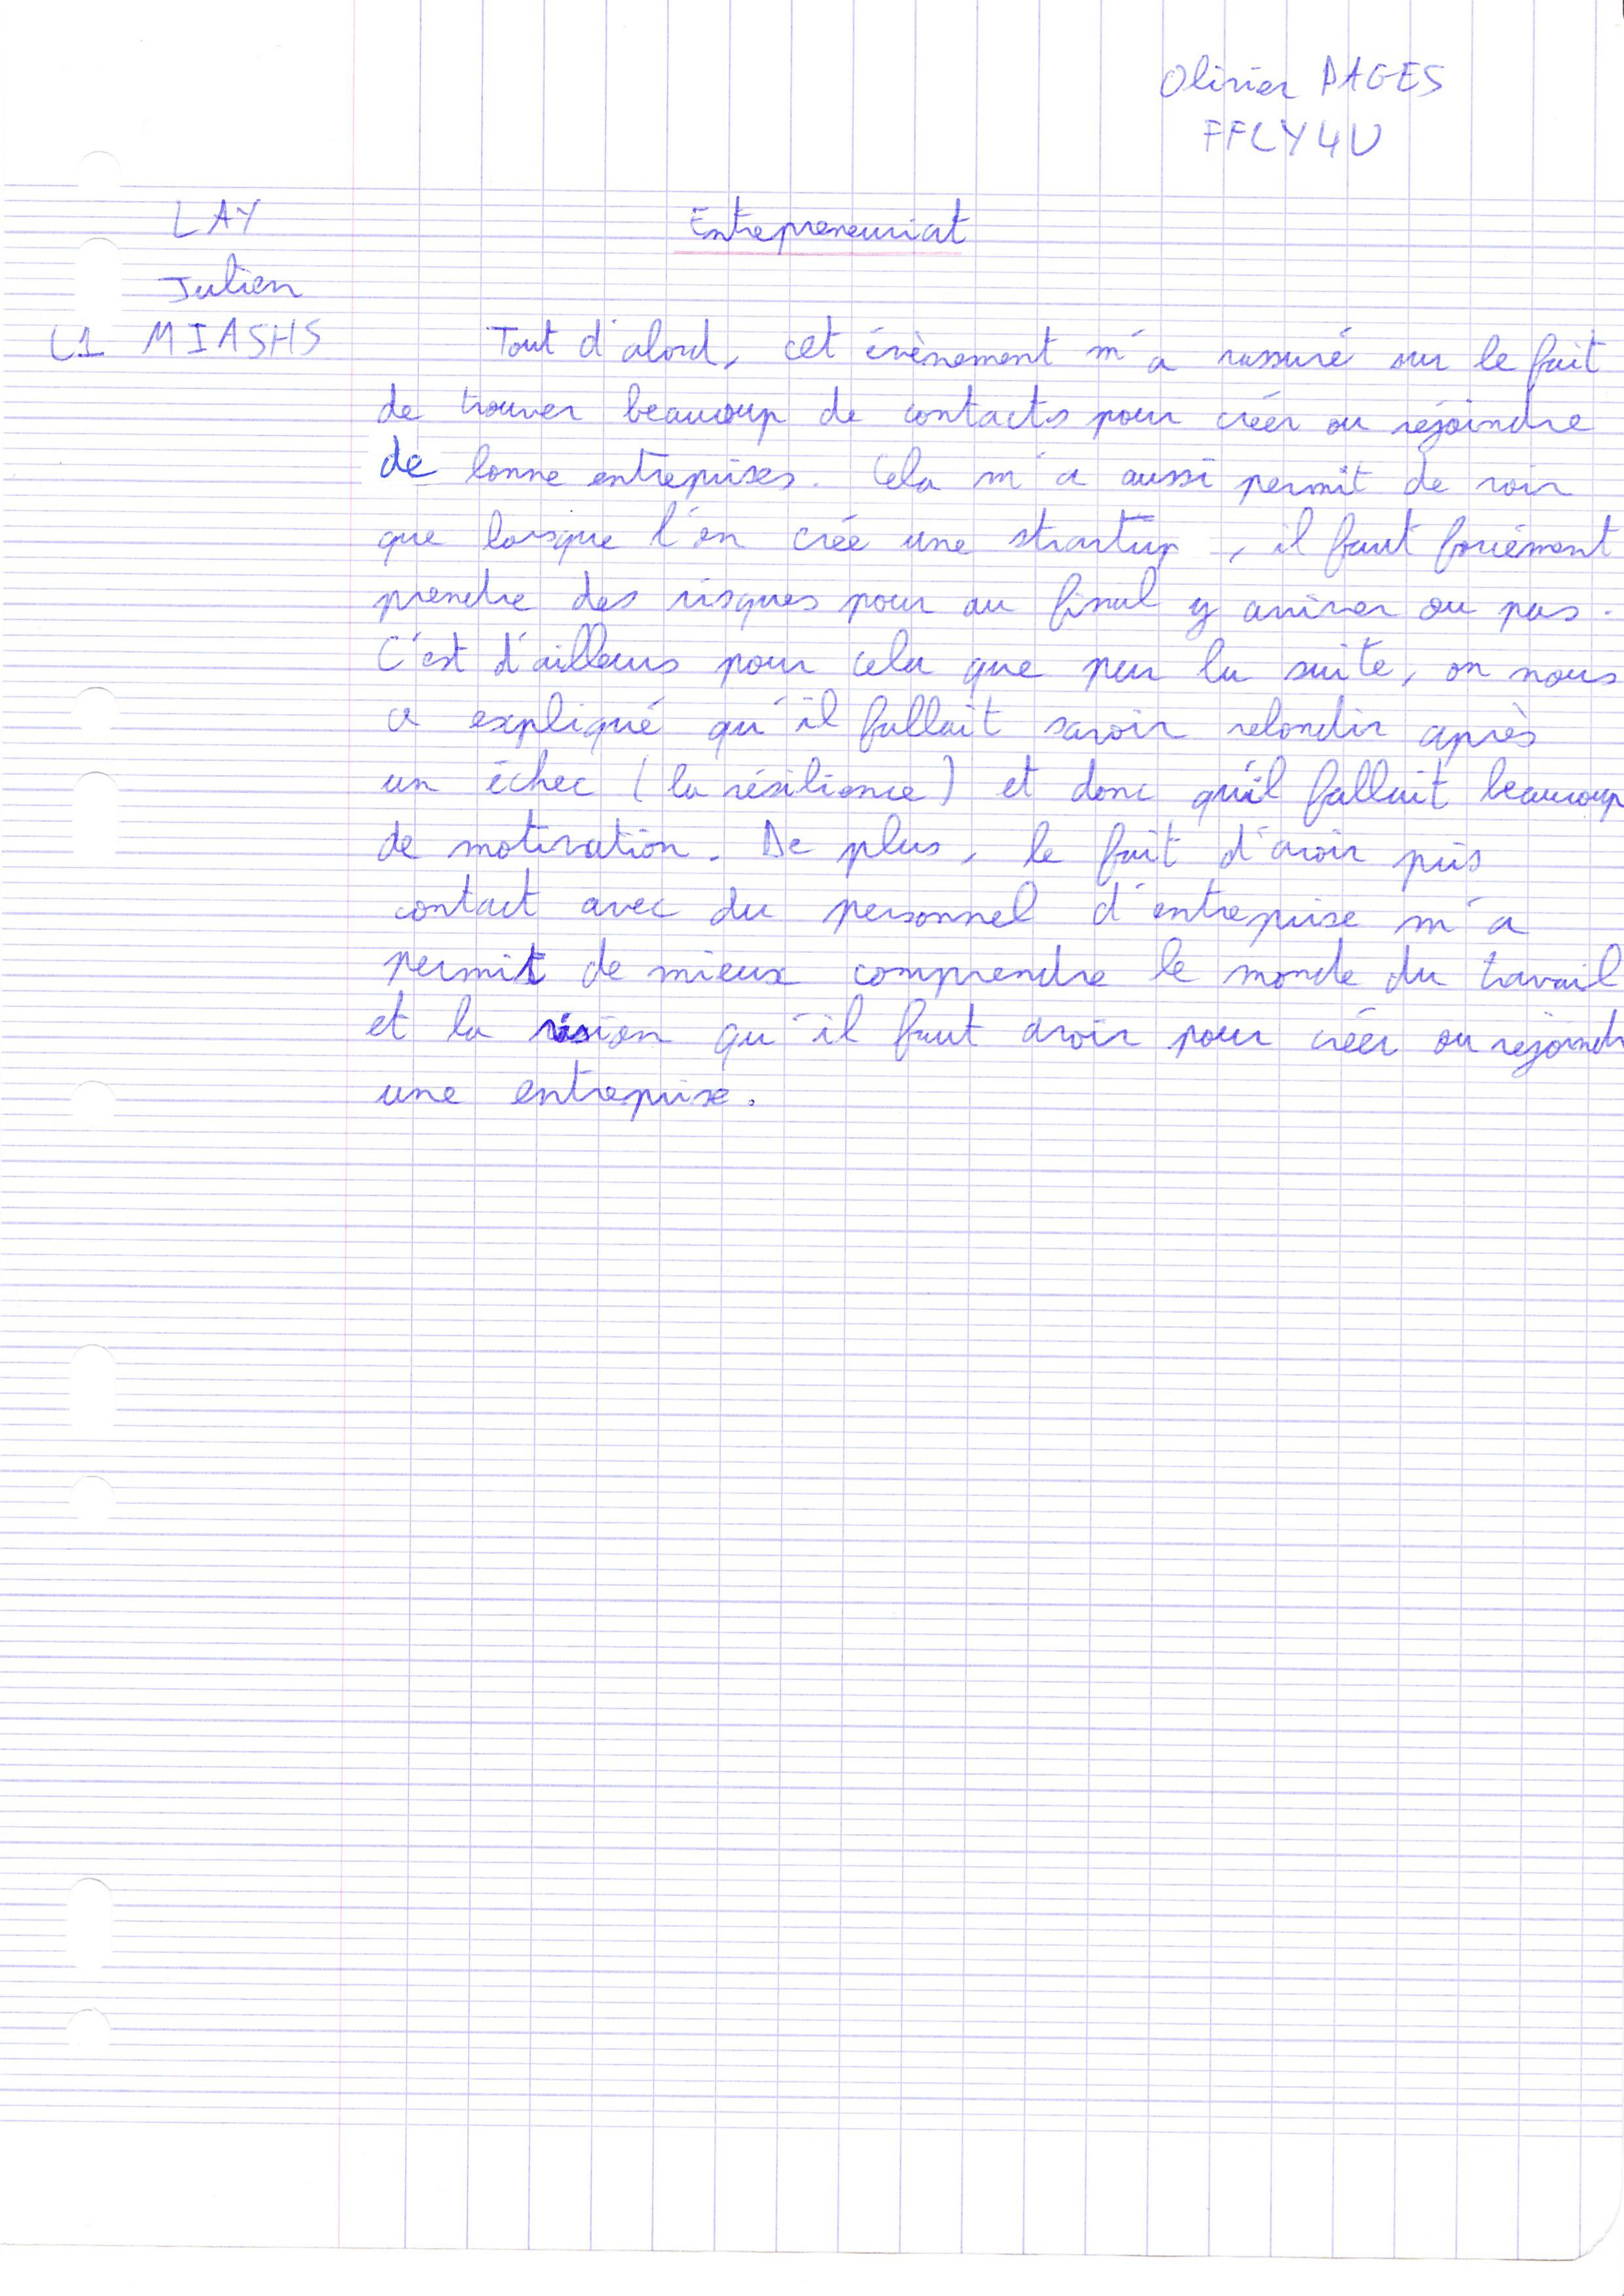 Olivier PAGES
FFLY4U
LAY
Entrepreneuriat
Julien
L1 MIASHS
Tout d'abord, cet évènement m'a rassuré sur le fait
de trouver beaucoup de contacts pour créer ou rejoindre
de bonne entreprises. Cela m'a aussi permit de voir
que lorsque l'on crée une strartup, il faut forcément
prendre des risques pour au final y arriver ou pas.
C'est d'ailleurs pour cela que par la suite, on nous
a expliqué qu'il fallait savoir rebondir après
un échec (la résilience) et donc qu'il fallait beaucoup
de motivation. De plus, le fait d'avoir pris
contact avec du personnel d'entreprise m'a
permit de mieux comprendre le monde du travail
et la vision qu'il faut avoir pour créer ou rejoindr
une entreprise.